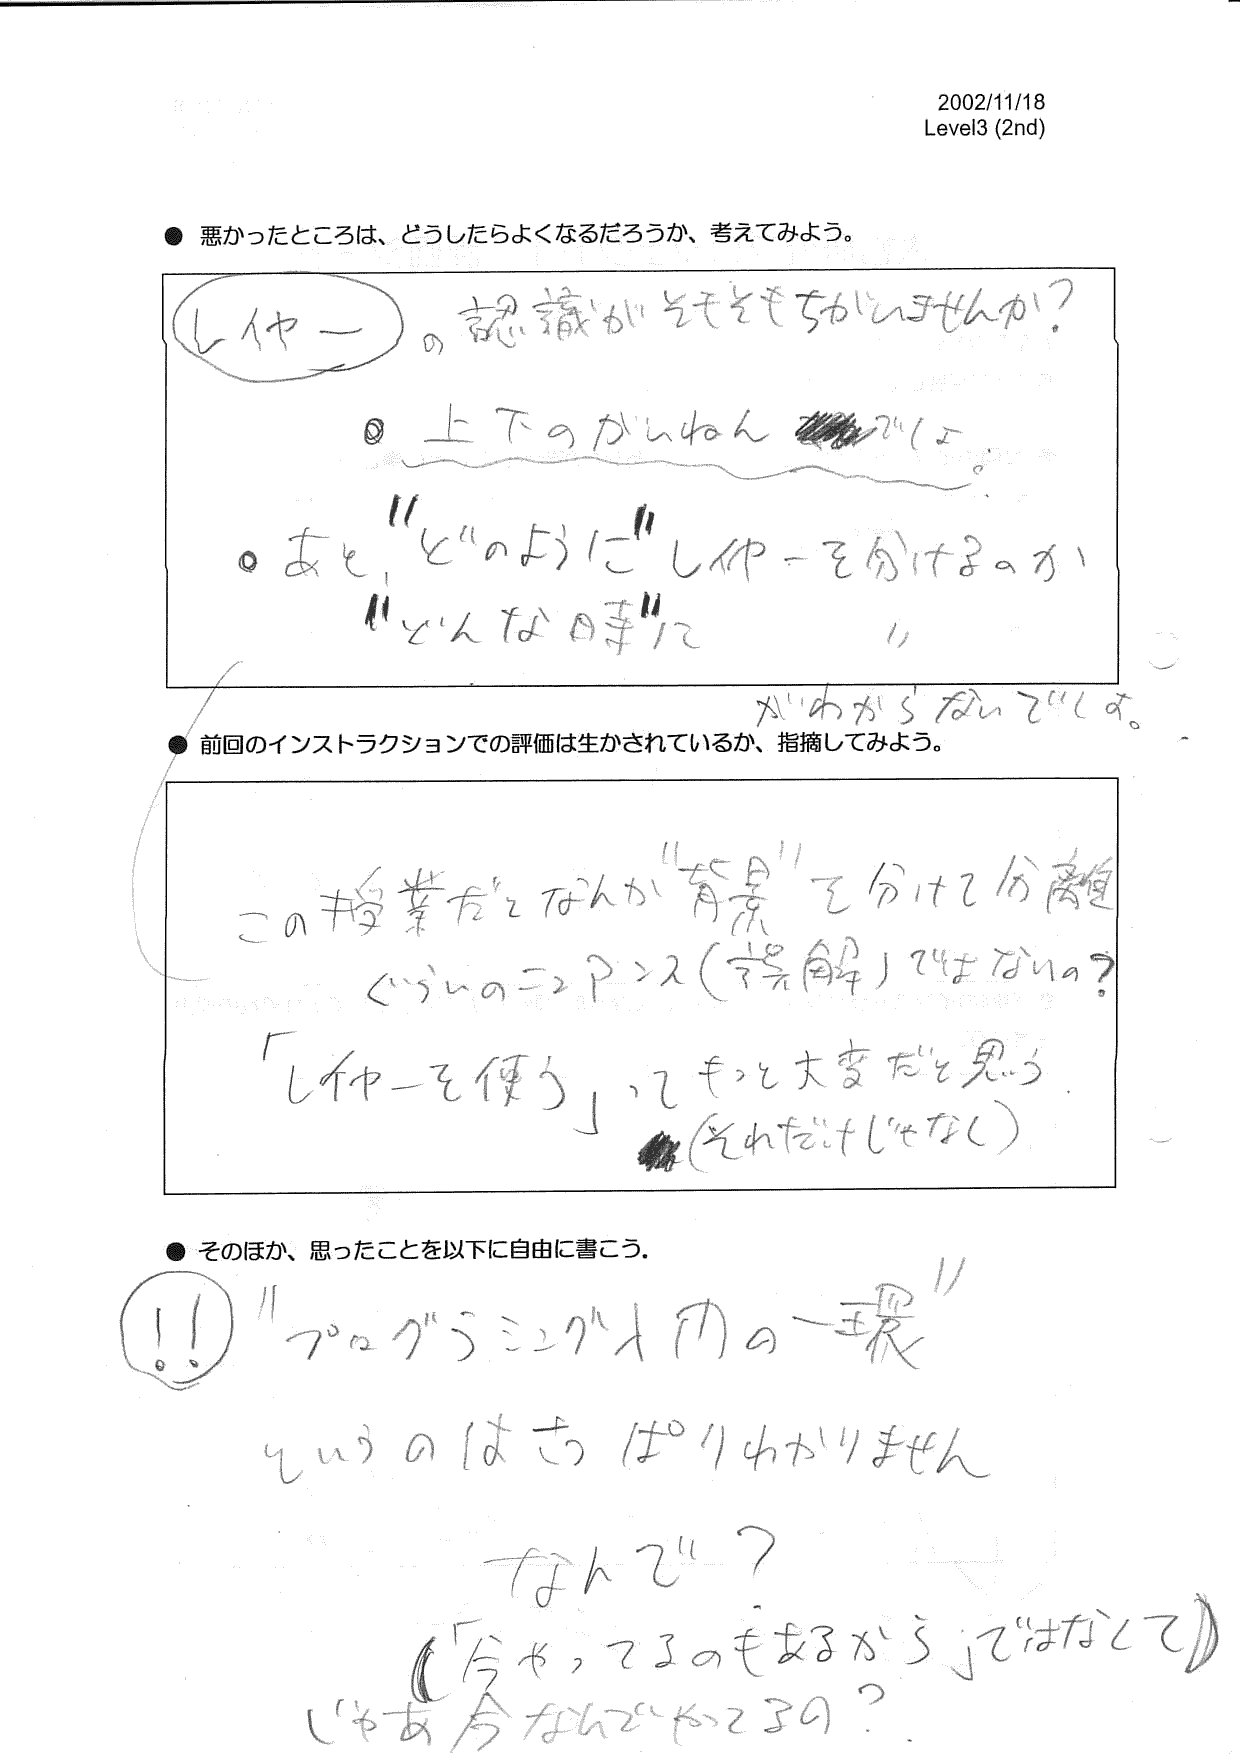 2002/11/18
Level3 (2nd)
● 悪かったところは、どうしたらよくなるだろうか、考えてみよう。
レイヤーの認識がそもそもちがいませんか?
上下のがいねんでしょ。
あと、"どのように"レイヤーを分けるのか
"どんな時"に 〃
がわからないでしょ。
● 前回のインストラクションでの評価は生かされているか、指摘してみよう。
この授業だとなんか"背景"を分けて分離
ぐらいのニュアンス(誤解)ではないの?
「レイヤーを使う」ってもっと大変だと思う
(それだけじゃなく)
● そのほか、思ったことを以下に自由に書こう.
!! "プログラミング入門の一環"
というのはさっぱりわかりません
なんで?
(「今やってるのもあるから」ではなくて)
じゃあ今なんでやってるの?